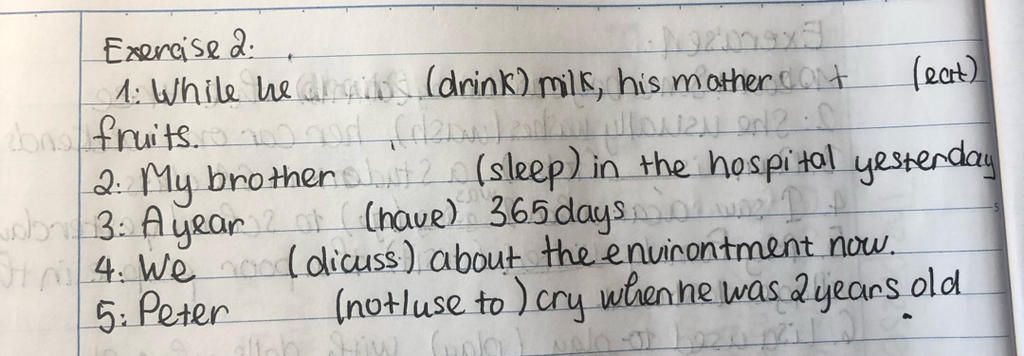 Exercise 2.
1: While he (drink) milk, his mother (eat)
fruits.
2. My brother (sleep) in the hospital yesterday
3: A year (have) 365 days
4. We (dicuss) about the environtment now.
5: Peter (not/use to) cry when he was 2 years old.